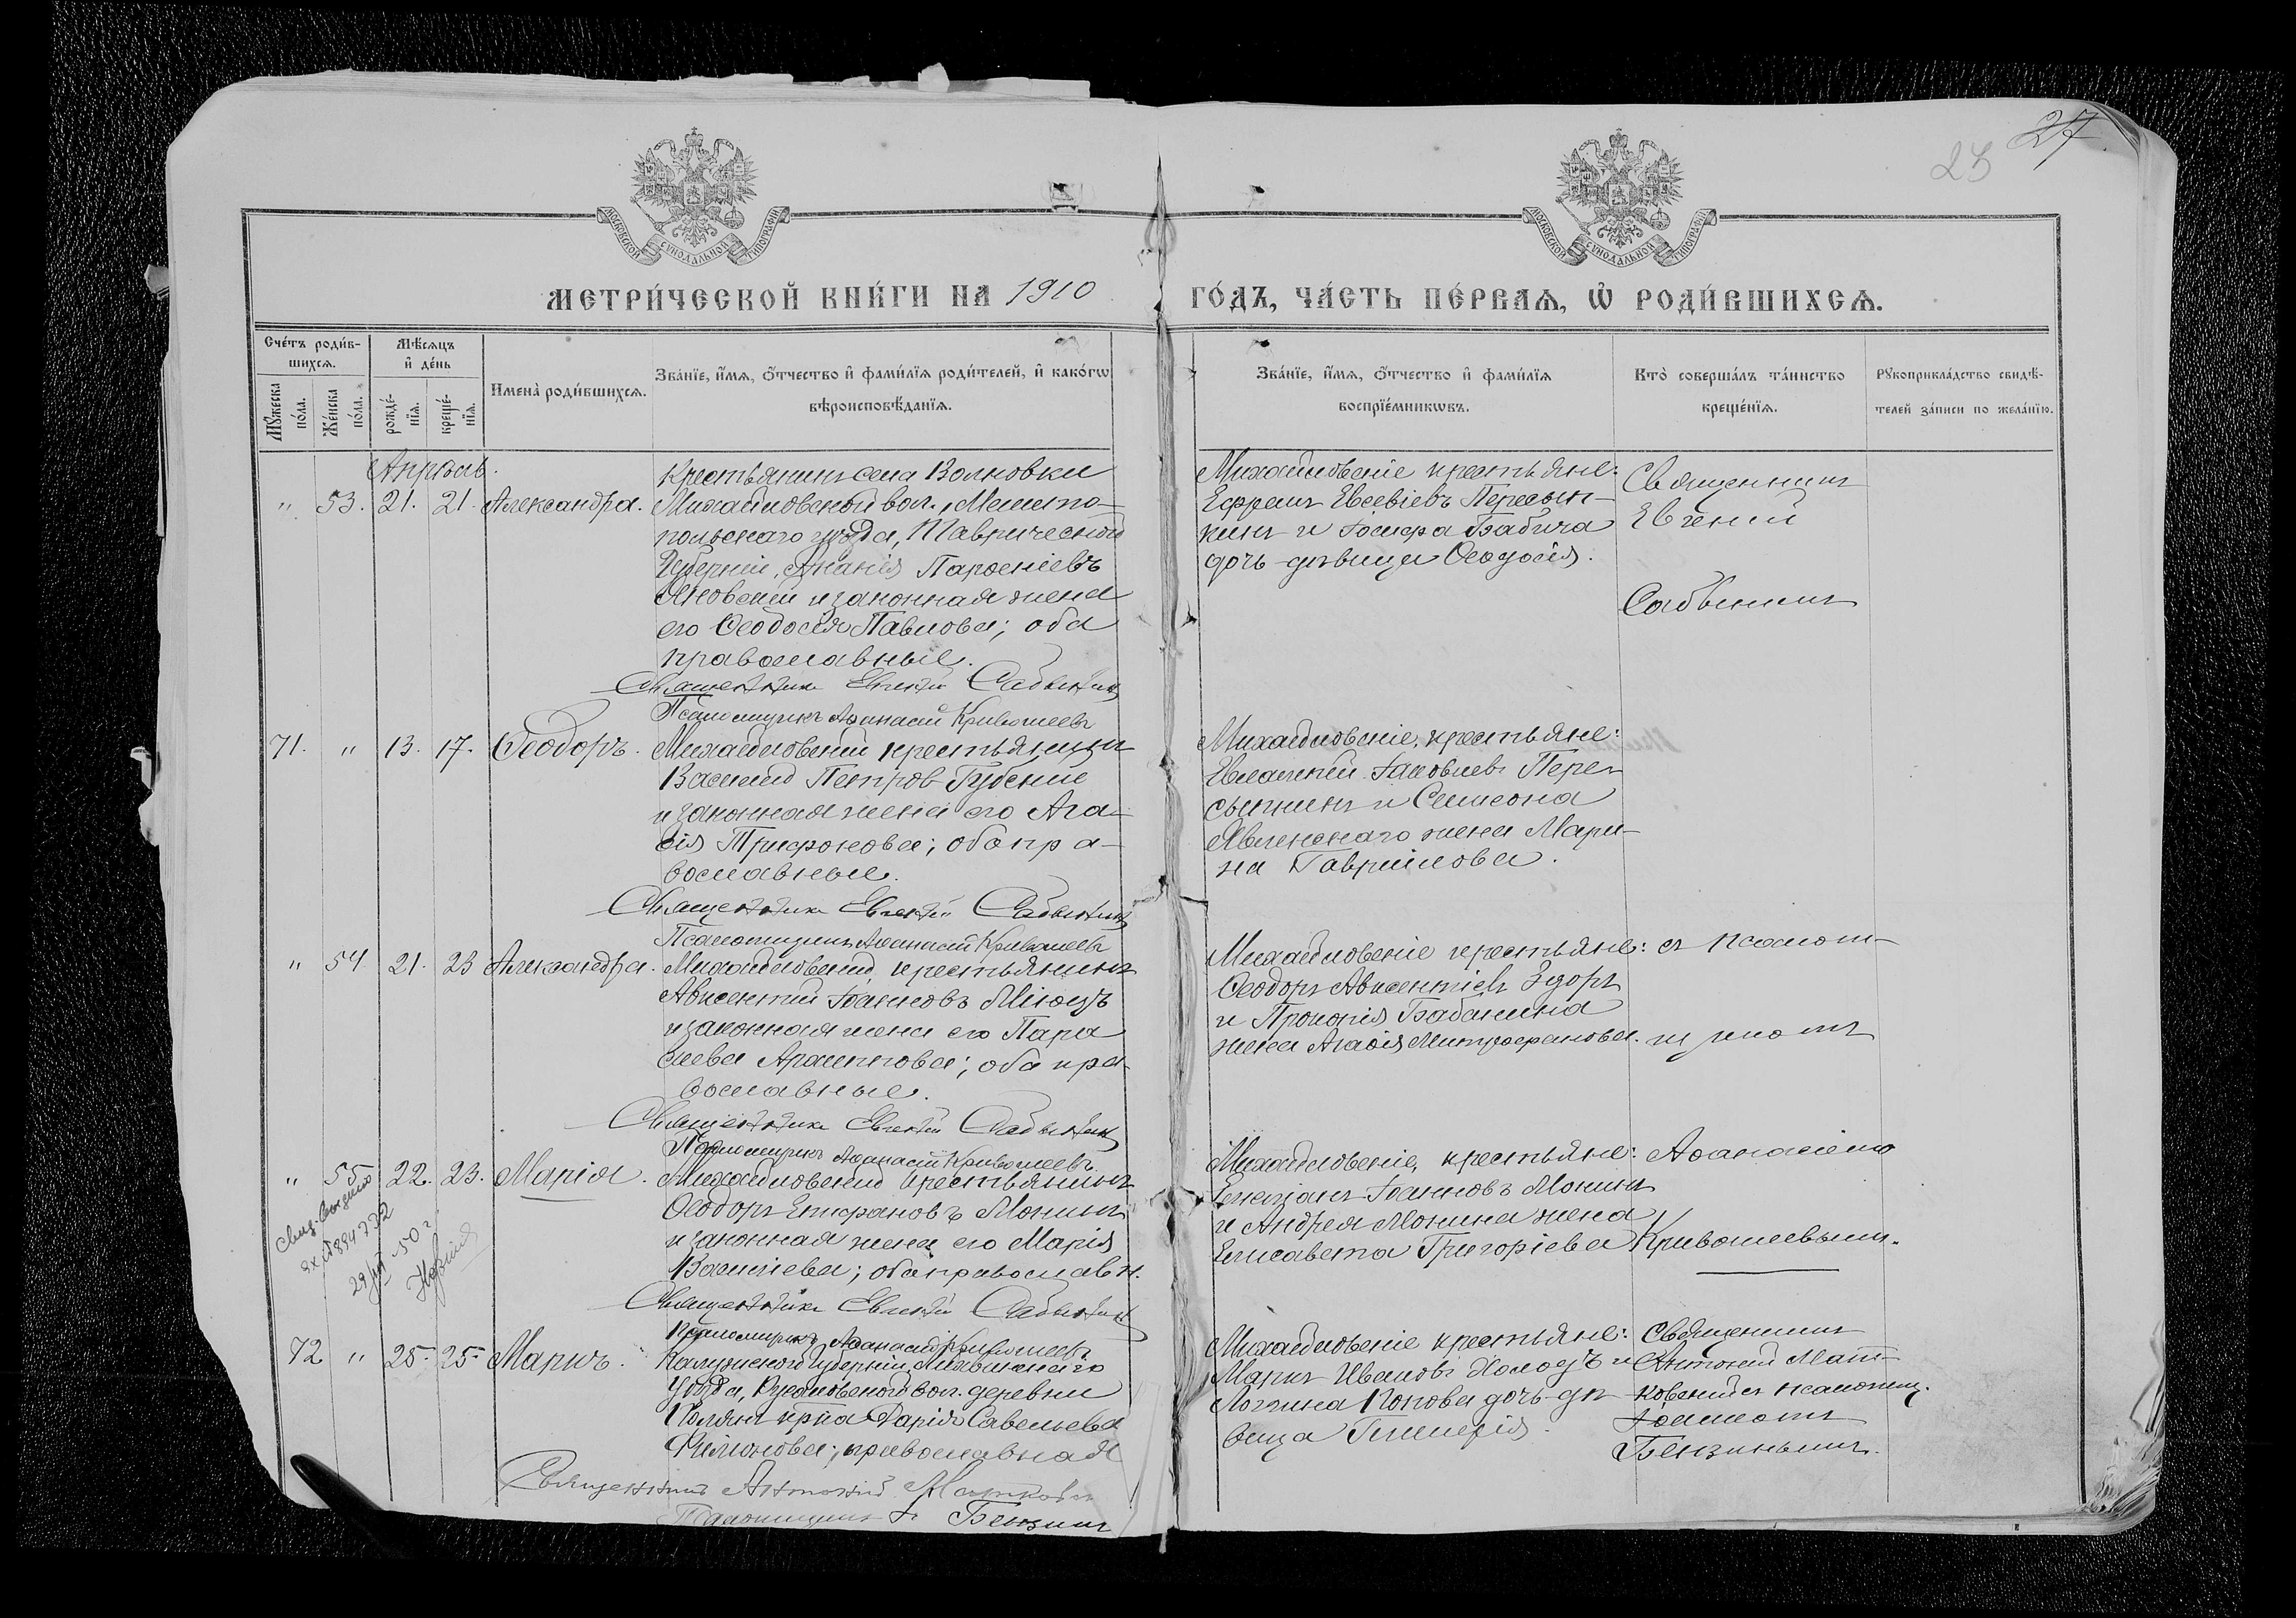 27
23
МОСКОВСКОЙ СѴНОДАЛЬНОЙ ТИПОГРАФІИ
МОСКОВСКОЙ СѴНОДАЛЬНОЙ ТИПОГРАФІИ
МЕТРИ́ЧЕСКОЙ КНИ́ГИ НА 1910 ГО́ДЪ, ЧА́СТЬ ПЕ́РВАѦ, Ѡ҆ РОДИ́ВШИХСѦ.
Сче́тъ роди́в-
шихсѧ.
Мꙋ́жеска
по́ла.
Же́нска
по́ла.
Мѣ́сѧцъ
и҆ де́нь
рожде́-
нїѧ.
креще́-
нїѧ.
Имена̀ роди́вшихсѧ.
Зва́нїе, и҆́мѧ, ѻ҆́тчество и҆ фами́лїѧ роди́телей, и҆ како́гѡ
вѣроисповѣ́данїѧ.
Зва́нїе, и҆́мѧ, ѻ҆́тчество и҆ фами́лїѧ
воспрїе́мникѡвъ.
Кто̀ соверша́лъ та́инство
креще́нїѧ.
Рꙋкоприкла́дство свидѣ́-
телей за́писи по жела́нїю.
Апрѣль.
" 53. 21. 21. Александра.
Крестьянинъ села Волковки
Михайловской вол., Мелито-
польскаго уѣзда, Таврической
Губерніи, Ананія Парѳеніевъ
Яновскій и законная жена
его Ѳеодосія Павлова; оба
православные.
Священникъ Евгеній
Псаломщикъ Аѳанасій Кривошеевъ
Михайловскіе крестьяне:
Ефремъ Евсевіевъ Пересып-
кинъ и Іосифа Бабича
дочь-дѣвица Ѳеодосія.
Священникъ
Евгеній
71. " 13. 17. Ѳеодоръ.
Михайловскій крестьянинъ
Василій Петровъ Губскій
и законная жена его Ага-
ѳія Трифонова; оба пра-
вославные.
Священникъ Евгеній
Псаломщикъ Аѳанасій Кривошеевъ
Михайловскіе крестьяне:
Іаковлевъ Пере-
сыпкинъ и Симеона
Явленскаго жена Мари-
на Гавріилова.
" 54 21. 23 Александра.
Михайловскій крестьянинъ
Авксентій Іоанновъ
и законная жена его Пара
скева; оба пра-
вославные.
Священникъ Евгеній
Псаломщикъ Аѳанасій Кривошеевъ
Михайловскіе крестьяне:
Ѳеодоръ Авксентіевъ Здоръ
и Прокопія Бабанина
жена Агаѳія Митрофанова.
съ псалом-
щикомъ
" 55 22. 23. Марія.
Михайловскій крестьянинъ
Ѳеодоръ Епифановъ Мокинъ
и законная жена его Марія
Васильева; оба православн.
Священникъ Евгеній
Псаломщикъ Аѳанасій Кривошеевъ
29/VII-50 г.
Михайловскіе крестьяне:
Іоанновъ Мокинъ
и Андрея Мокина жена
Елисавета Григоріева
Аѳанасіемъ
Кривошеевымъ.
72 " 25. 25. Маркъ.
Калужской губерніи, Лихвинскаго
уѣзда, вол. деревни
Поляны кр-ка Дарія Савельева
Филюнова; православная
Священникъ Антоній
Псаломщикъ І. Бензинъ
Михайловскіе крестьяне:
Маркъ Ивановъ Холодъ и
Логгина Попова дочь-дѣ-
вица Гликерія.
Священникъ
Антоній Мат-
ковскій съ псаломщ.
Іоанномъ
Бензинымъ.